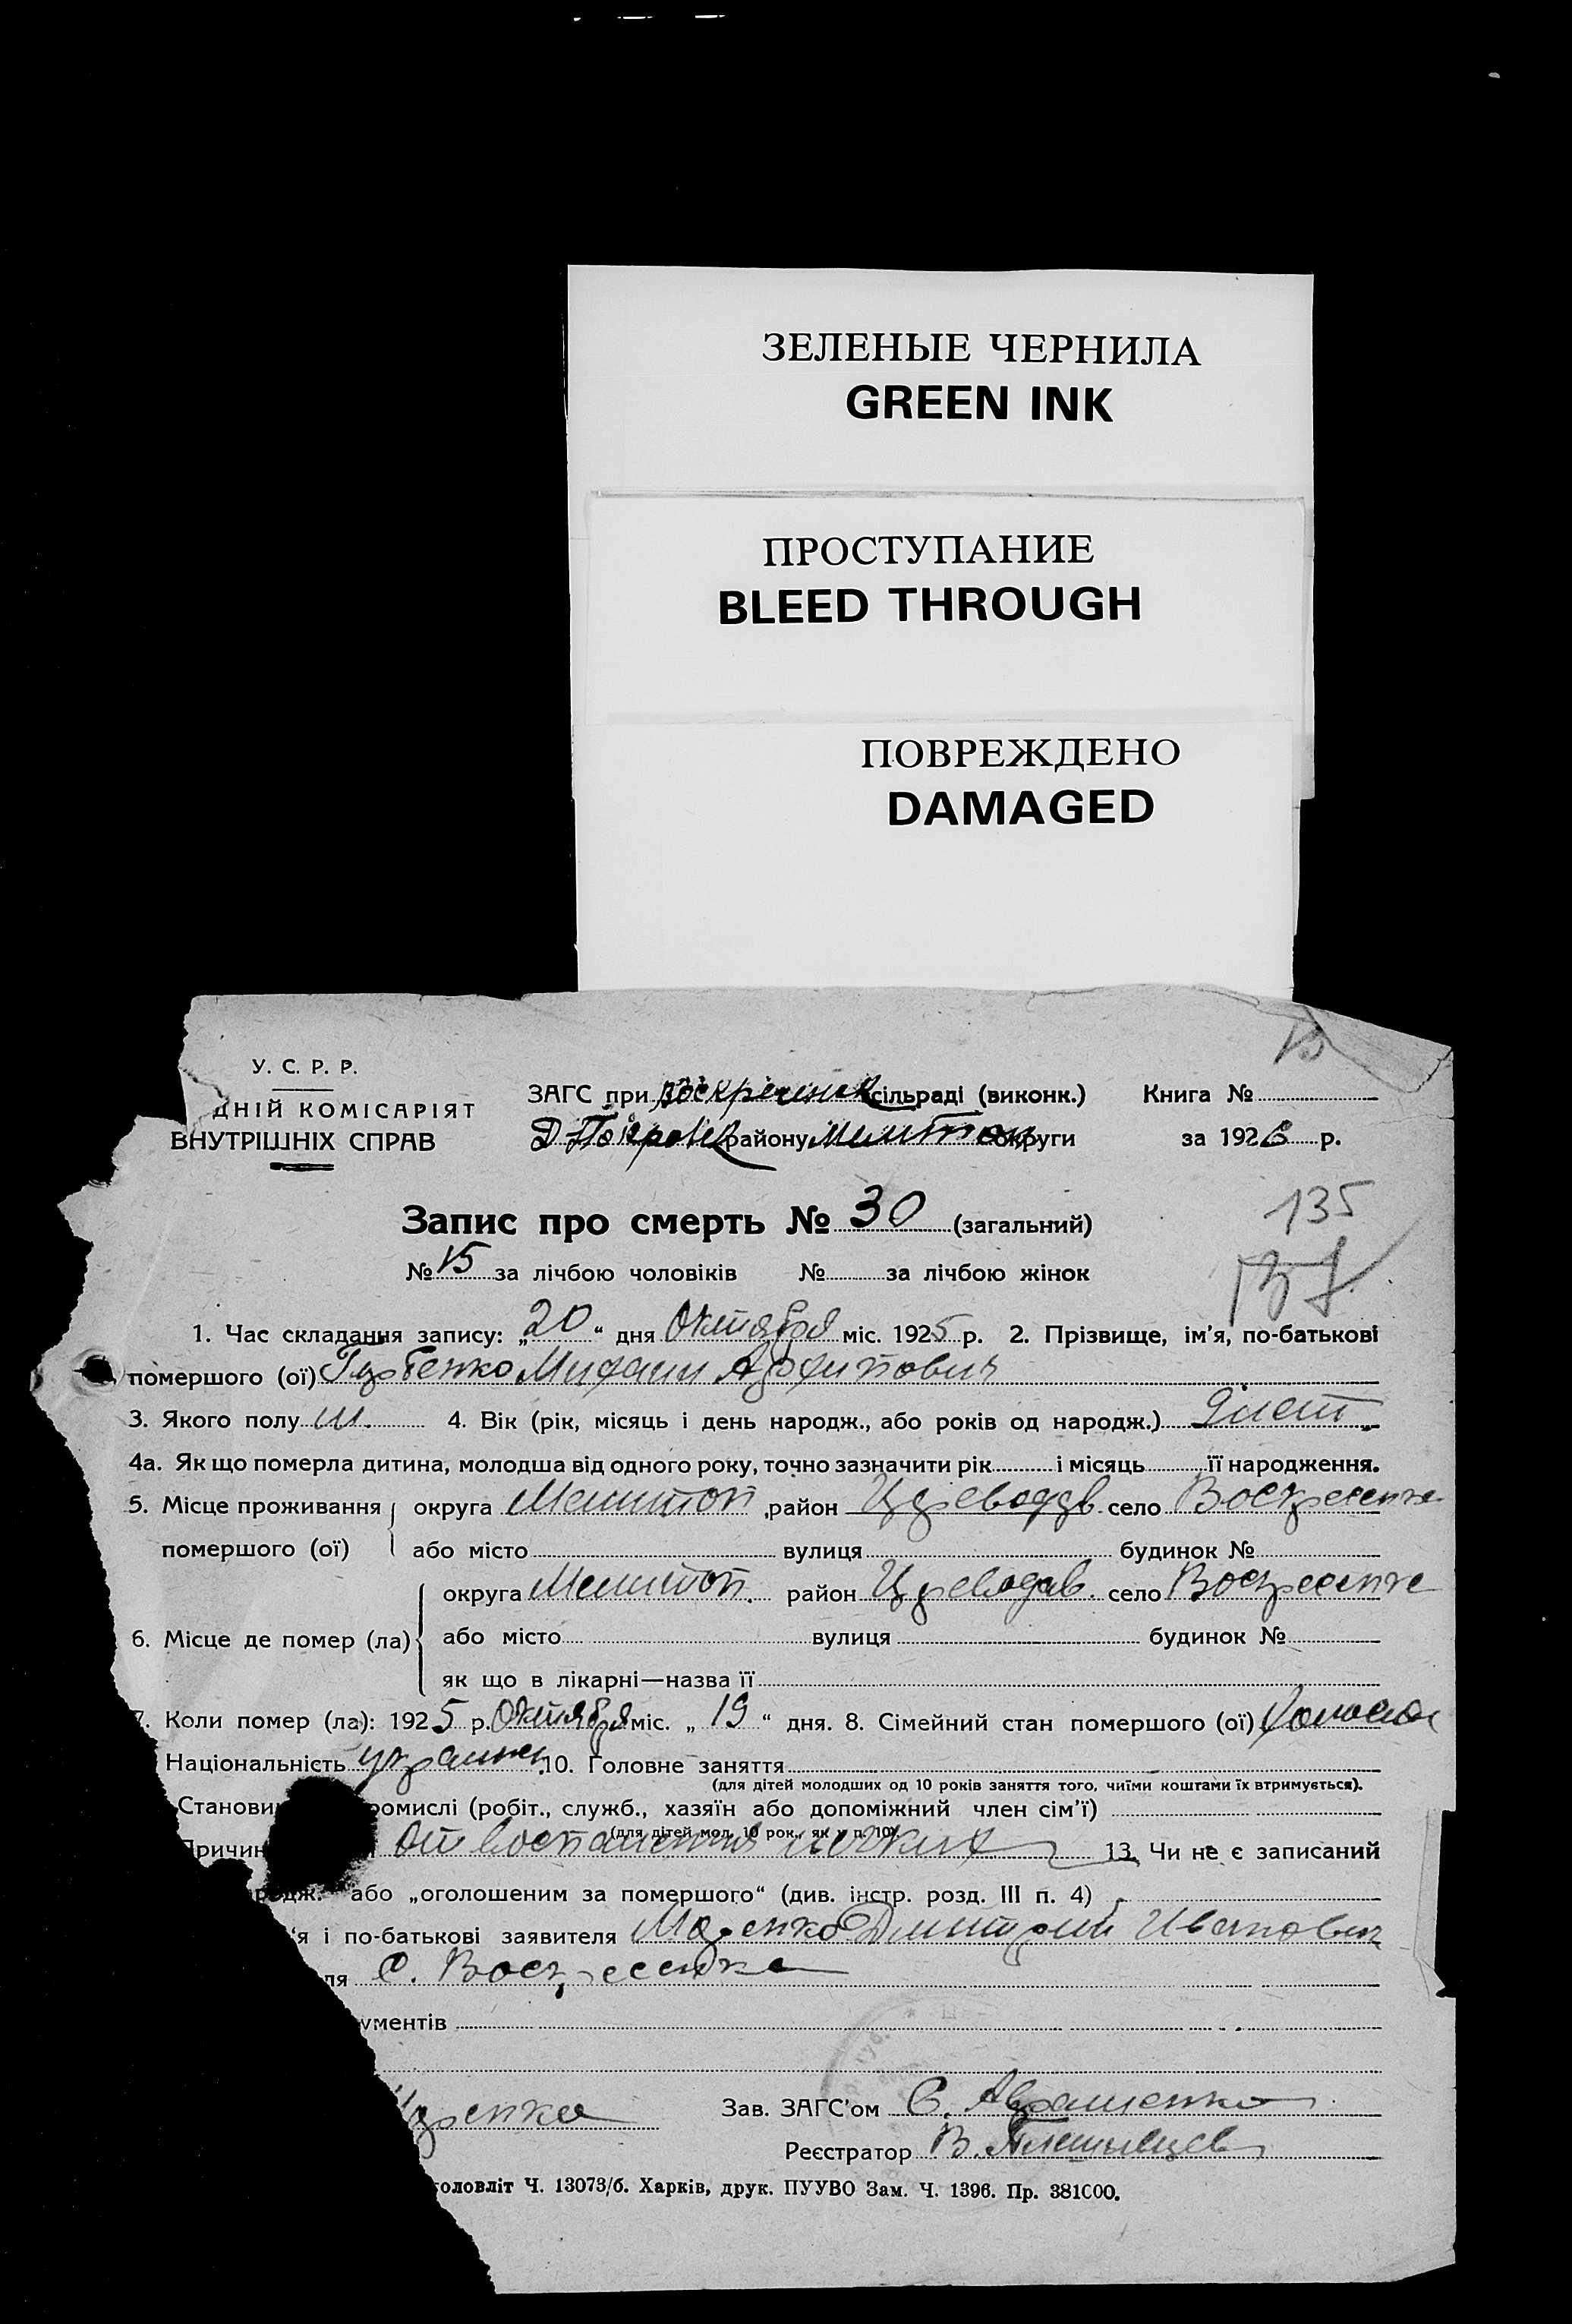 ЗЕЛЕНЫЕ ЧЕРНИЛА
GREEN INK
ПРОСТУПАНИЕ
BLEED THROUGH
ПОВРЕЖДЕНО
DAMAGED
У. С. Р. Р.
ДНІЙ КОМІСАРІЯТ
ВНУТРІШНІХ СПРАВ
ЗАГС при сільраді (виконк.) Книга №
району округи за 192 р.
Запис про смерть № 30 (загальний)
135
№ 15 за лічбою чоловіків № за лічбою жінок
1. Час складання запису: „20“ дня Октября міс. 1925 р. 2. Прізвище, ім’я, по-батькові
помершого (ої) Архипович
3. Якого полу м. 4. Вік (рік, місяць і день народж., або років од народж.) 9 лет
4а. Як що померла дитина, молодша від одного року, точно зазначити рік і місяць її народження.
5. Місце проживання округа Мелитоп район село
помершого (ої) або місто вулиця будинок №
округа Мелитоп. район село
6. Місце де помер (ла) або місто вулиця будинок №
як що в лікарні—назва її
7. Коли помер (ла): 1925 р. Октября міс. „19“ дня. 8. Сімейний стан помершого (ої) холостой
Національність украинец 10. Головне заняття
(для дітей молодших од 10 років заняття того, чиїми коштами їх втримується).
Станови ромислі (робіт., служб., хазяїн або допоміжний член сім’ї)
(для дітей мол. 10 рок., як у п. 10).
Причин От воспаления почких 13. Чи не є записаний
родж.“ або „оголошеним за помершого“ (див. інстр. розд. III п. 4)
’я і по-батькові заявителя Дмитрий Иванович
ля С. Воскресенка
ументів
Зав. ЗАГС’ом С. Авраменко
Реєстратор В.
головліт Ч. 13073/б. Харків, друк. ПУУВО Зам. Ч. 1396. Пр. 381000.